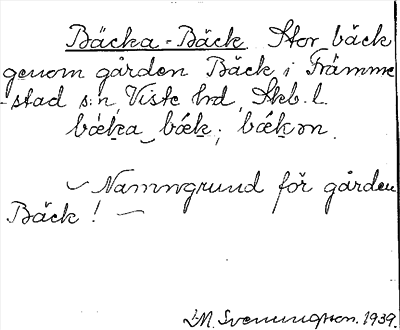 Bäcka-Bäck Stor bäck
genom gården Bäck i Främme
-stad s:n, Viste hd, Skb. l.
bǽka bǽk; bǽkən
~ Namngrund för gården
Bäck! ~
M. Svenungsson. 1939.